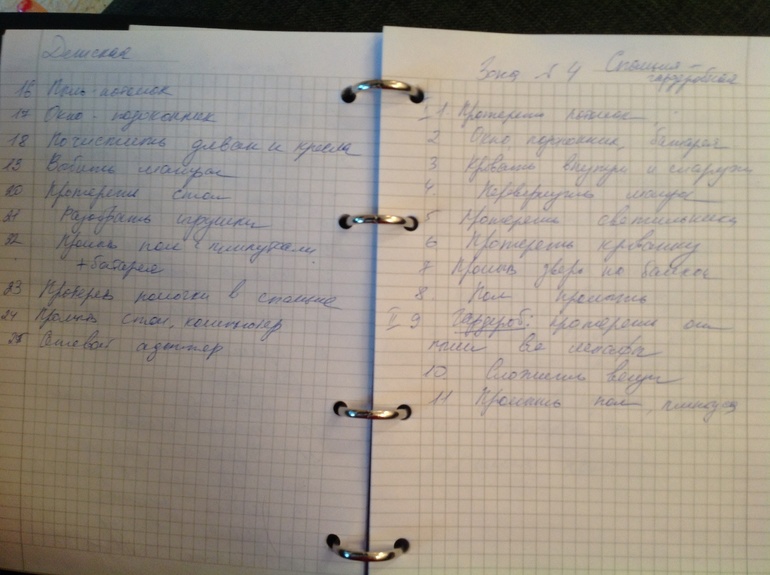 Детская
16 Пыль-потолок
17 Окно - подоконник
18 Почистить диван и кресла
19 Взбить матрас
20 Протереть стол
21 Разобрать игрушки
22 Промыть пол + плинтуса
+ батарея
23 Протереть полочки в спальне
24 Промыть стол, компьютер
25 Сетевой адаптер
Зона № 4 Спальня -
гардеробная
I 1 Протереть потолок
2 Окно, подоконник, батарея
3 Кровать внутри и снаружи
4. Перевернуть матрас
5 Протереть светильники
6 Протереть кроватку
7 Промыть дверь на балкон
8. Пол промыть
II 9 Гардероб: протереть от
пыли все шкафы
10. Сложить вещи
11 Промыть пол, плинтуса